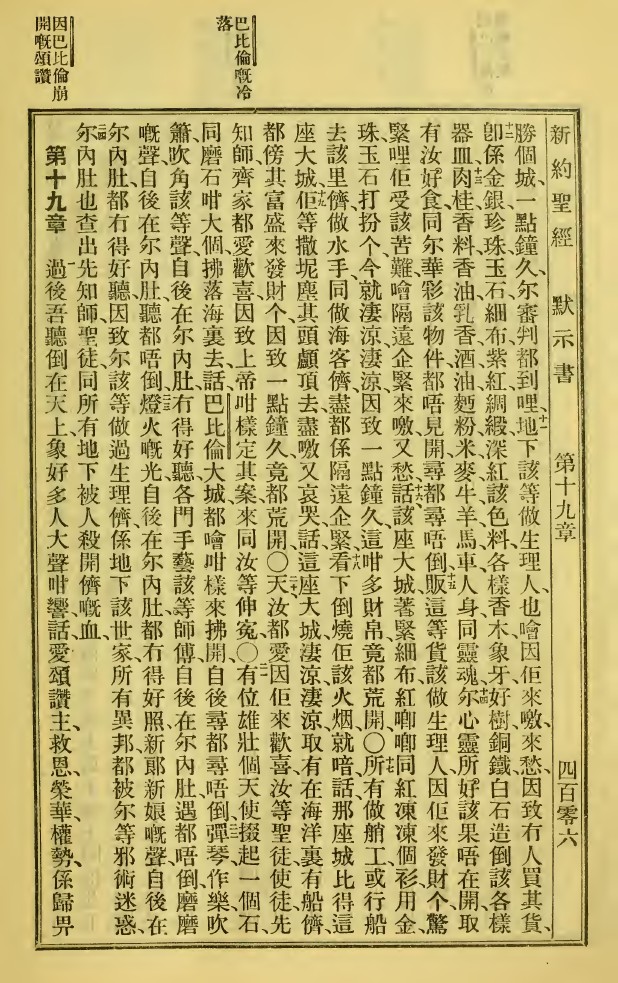 新約聖經 默示書 第十九章 四百零六
巴比倫嘅冷
落
因巴比倫崩
開嘅頌讚
勝個城、一點鐘久、尔審判都到哩、十一地下該等做生理人也噲因佢來噭、來愁、因致冇人買其貨、
十二卽係金銀珍珠玉石細布紫紅綢緞深紅該色料各樣香木象牙好樹銅鐵白石造倒該各樣
器皿、十三肉桂香料香油乳香酒油麪粉米麥牛羊馬車人身同靈魂、十四尔心靈所好該果唔在開、取
有汝好食同尔華彩該物件都唔見開尋都尋唔倒、十五販這等貨該做生理人因佢來發財个、驚
緊哩佢受該苦難、噲隔遠企緊來噭、又愁、十六話該座大城著緊細布紅唧唧同紅凍凍個衫用金
珠玉石打扮个、今就淒涼淒涼、因致一點鐘久、這咁多財帛竟都荒開、〇十七所有做艄工或行船
去該里儕、做水手同做海客儕、盡都係隔遠企緊、十八看下倒燒佢該火烟、就喑話、那座城比得這
座大城、十九佢等撒坭塵其頭顱頂去、盡噭又哀哭、話、這座大城淒涼淒涼、取有在海洋裏有船儕、
都傍其富盛來發財个、因致一點鐘久、竟都荒開、〇二十天、汝都愛因佢來歡喜、汝等聖徒使徒先
知師齊家都愛歡喜、因致上帝咁樣定其案、來同汝等伸寃、〇二一有位雄壯個天使掇起一個石
同磨石咁大個、拂落海裏去、話、巴比倫大城都噲咁樣來拂開、自後尋都尋唔倒、二二彈琴作樂吹
簫、吹角、該等聲自後在尔內肚冇得好聽、各門手藝該等師傅、自後在尔內肚遇都唔倒、磨磨
嘅聲、自後在尔內肚聽都唔倒、二三燈火嘅光、自後在尔內肚都冇得好照、新郞新娘嘅聲、自後在
尔內肚、都冇得好聽、因致尔該等做過生理儕係地下該世家、所有異邦都被尔等邪術迷惑、
二四尔內肚也查出先知師、聖徒、同所有地下被人殺開儕嘅血、
第十九章 過後吾聽倒在天上象好多人大聲咁響、話、愛頌讚主、救恩、榮華、權勢、係歸畀